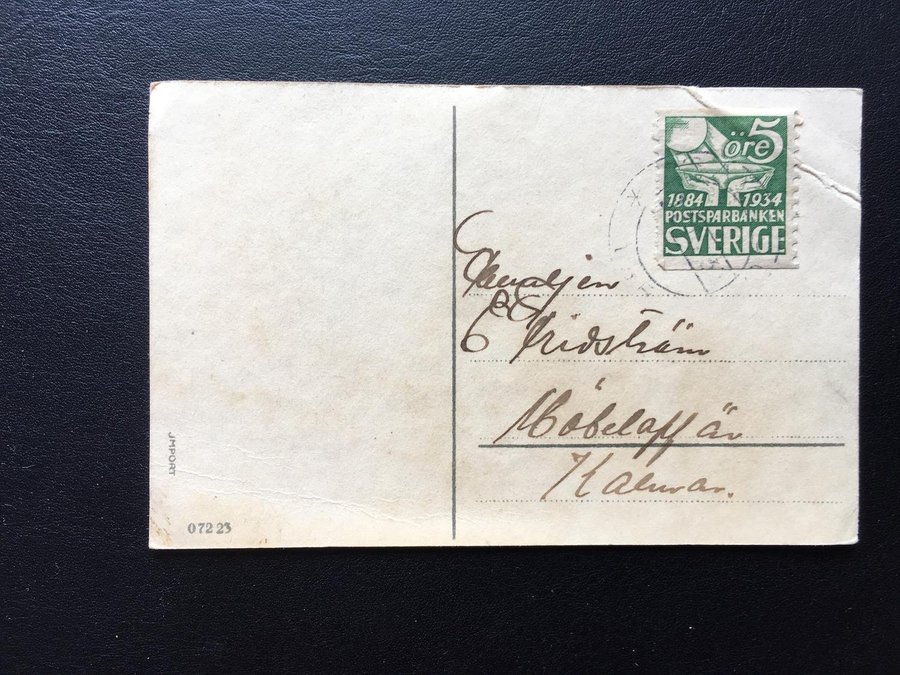 öre 5
1884 1934
POSTSPARBANKEN
SVERIGE
Familjen
Fridström
Möbelaffär
Kalmar.
JMPORT
07223